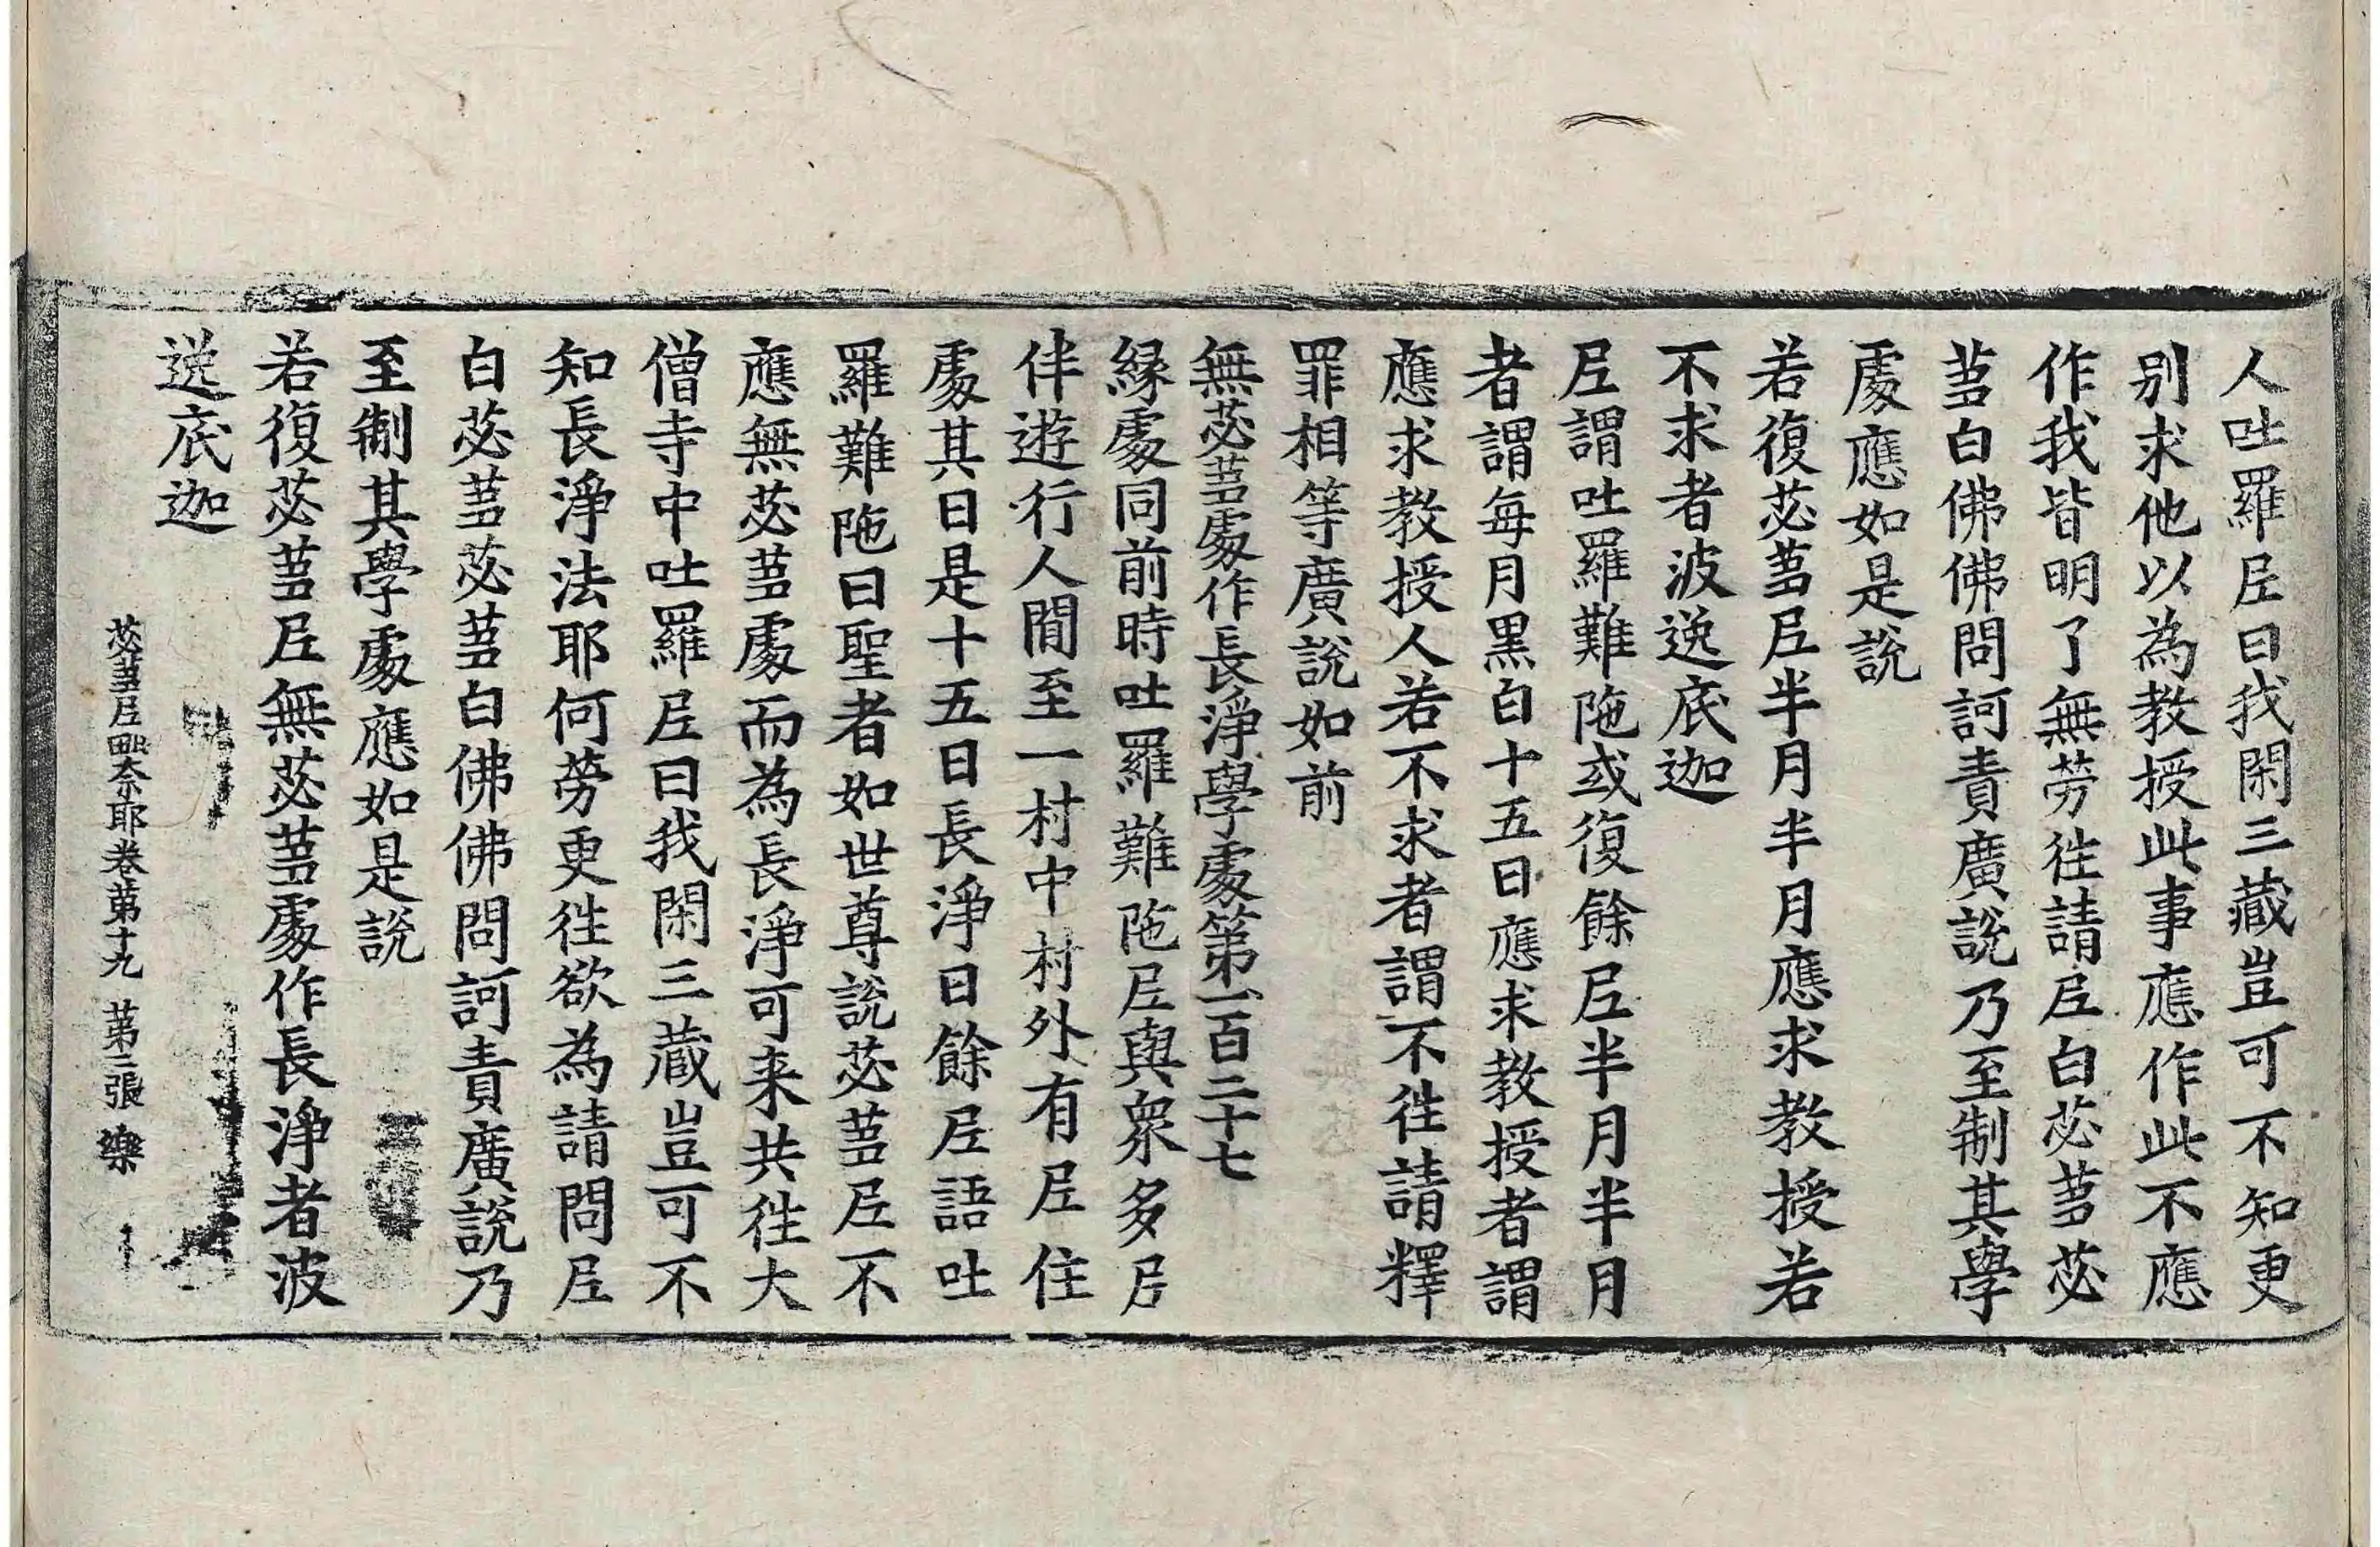 人吐羅𡰱曰我閑三藏豈可不知更
别求他以為教授此事應作此不應
作我皆明了無勞徃請𡰱白苾蒭苾
蒭白佛佛問訶責廣說乃至制其學
處應如是說
若復苾蒭𡰱半月半月應求教授若
不求者波逸底迦
𡰱謂吐羅難陁或復餘𡰱半月半月
者謂每月黑白十五日應求教授者謂
應求教授人若不求者謂不徃請釋
罪相等廣說如前
無苾蒭處作長淨學處第一百二十七
緣處同前時吐羅難陁𡰱與衆多𡰱
伴遊行人間至一村中村外有𡰱住
處其日是十五日長淨日餘𡰱語吐
羅難陁曰聖者如世尊說苾蒭𡰱不
應無苾蒭處而為長淨可来共徃大
僧寺中吐羅𡰱曰我閑三藏豈可不
知長淨法耶何勞更徃欲為請問𡰱
白苾蒭苾蒭白佛佛問訶責廣說乃
至制其學處應如是說
若復苾蒭𡰱無苾蒭處作長淨者波
逸底迦
苾蒭𡰱毗奈耶卷苐十九 苐三張 樂